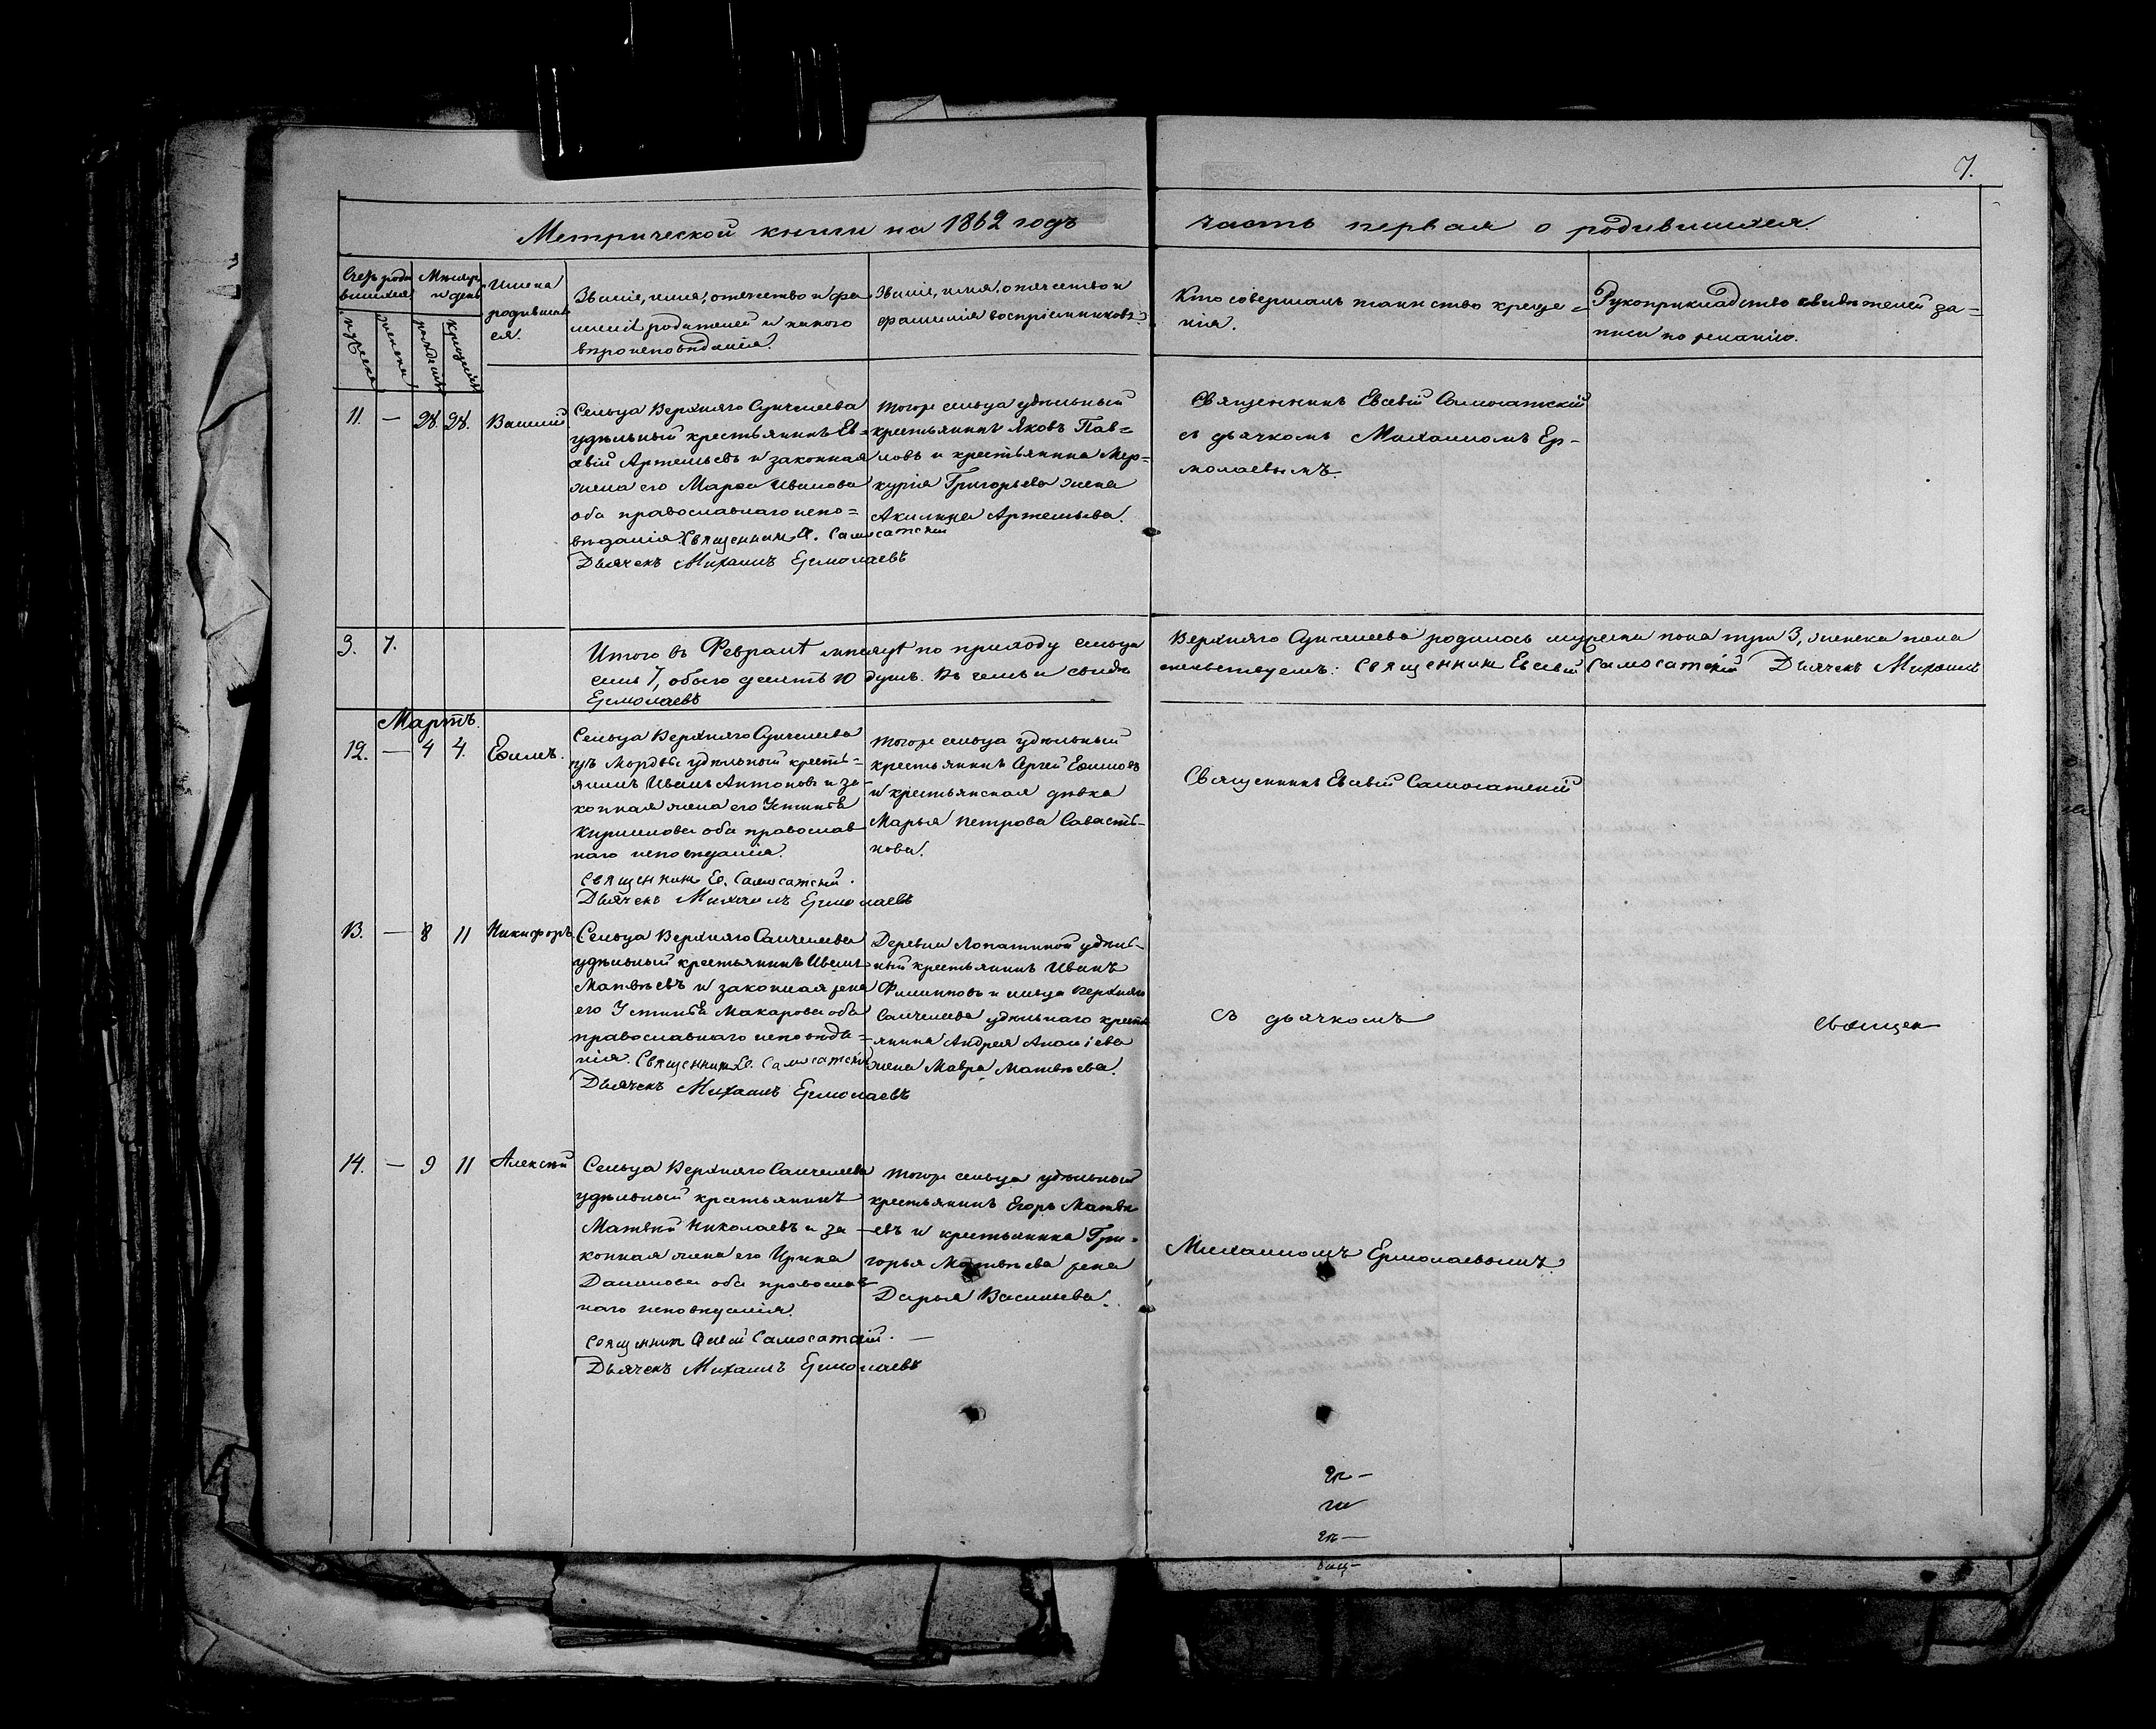 7.
Метрической книги на 1862 годъ часть первая о родившихся.
Счетъ роди
вшихся
мужеска
женска
Мѣсяцъ
и день
рожденія
крещенія
Имена
родивших
ся.
Званіе, имя, отечество и фа
милія родителей и какого
вѣроисповѣданія.
Званіе, имя, отечество и
фамилія воспріемниковъ.
Кто совершалъ таинство креще=
нія.
Рукоприкладство свидѣтелей за=
писи по желанію.
11. — 28. 28. Василій
Сельца Верхняго Санчелеева
удѣльный крестьянинъ Ев=
сѣвій Артемьевъ и законная
жена его Марѳа Иванова
оба православнаго испо=
вѣданія. Священникъ Е. Самосатскій
Дьячекъ Михаилъ Ермолаевъ
Тогоже сельца удѣльный
крестьянинъ Яковъ Пав=
ловъ и крестьянина Мер=
курія Григорьева жена
Акилина Артемьева.
Священникъ Евсевій Самосатскій
съ дьячкомъ Михаиломъ Ер-
молаевымъ.
3. 7.
Итого въ Февралѣ мѣсяцѣ по приходу сельца Верхняго Санчелеева родилось мужеска пола три 3, женска пола
семь 7, обоего десять 10 душъ. Въ чемъ и свидѣ тельствуемъ: Священникъ Евсевій Самосатскій Дьячекъ Михаилъ
Ермолаевъ
Мартъ.
12. — 4 4. Ефимъ.
Сельца Верхняго Санчелеева
изъ Мордвы удѣльный кресть=
янинъ Иванъ Антоновъ и за-
конная жена его Устинья
Кириллова оба православ
наго исповѣданія.
Священникъ Ев. Самосатскій.
Дьячекъ Михаилъ Ермолаевъ
Тогоже сельца удѣльный
крестьянинъ Сергей Ефимовъ
и крестьянская дѣвка
Марья Петрова Савасть-
нова.
Священникъ Евсевій Самосатскій
13. — 8 11 Никифоръ.
Сельца Верхняго Санчелеева
удѣльный крестьянинъ Иванъ
Матвѣевъ и законная жена
его Устинья Макарова оба
православнаго исповѣда=
нія. Священникъ Е. Самосатскій
Дьячекъ Михаилъ Ермолаевъ
Деревни Лопатиной удѣль-
ный крестьянинъ Иванъ
Филипповъ и сельца Верхняго
Санчелеева удѣльнаго кресть
янина Андрея Ананіева
жена Мавра Матвѣева.
съ дьячкомъ
Священ
14. — 9 11 Алексѣй
Сельца Верхняго Санчелеева
удѣльный крестьянинъ
Матвѣй Николаевъ и за-
конная жена его Ирина
Данилова оба православ
наго исповѣданія.
Священникъ Евсевій Самосатскій. —
Дьячекъ Михаилъ Ермолаевъ
Тогоже сельца удѣльный
крестьянинъ Егоръ Матвѣ
евъ и крестьянина Гри=
горья Матвѣева жена
Дарья Васильева.
Михаиломъ Ермолаевымъ.